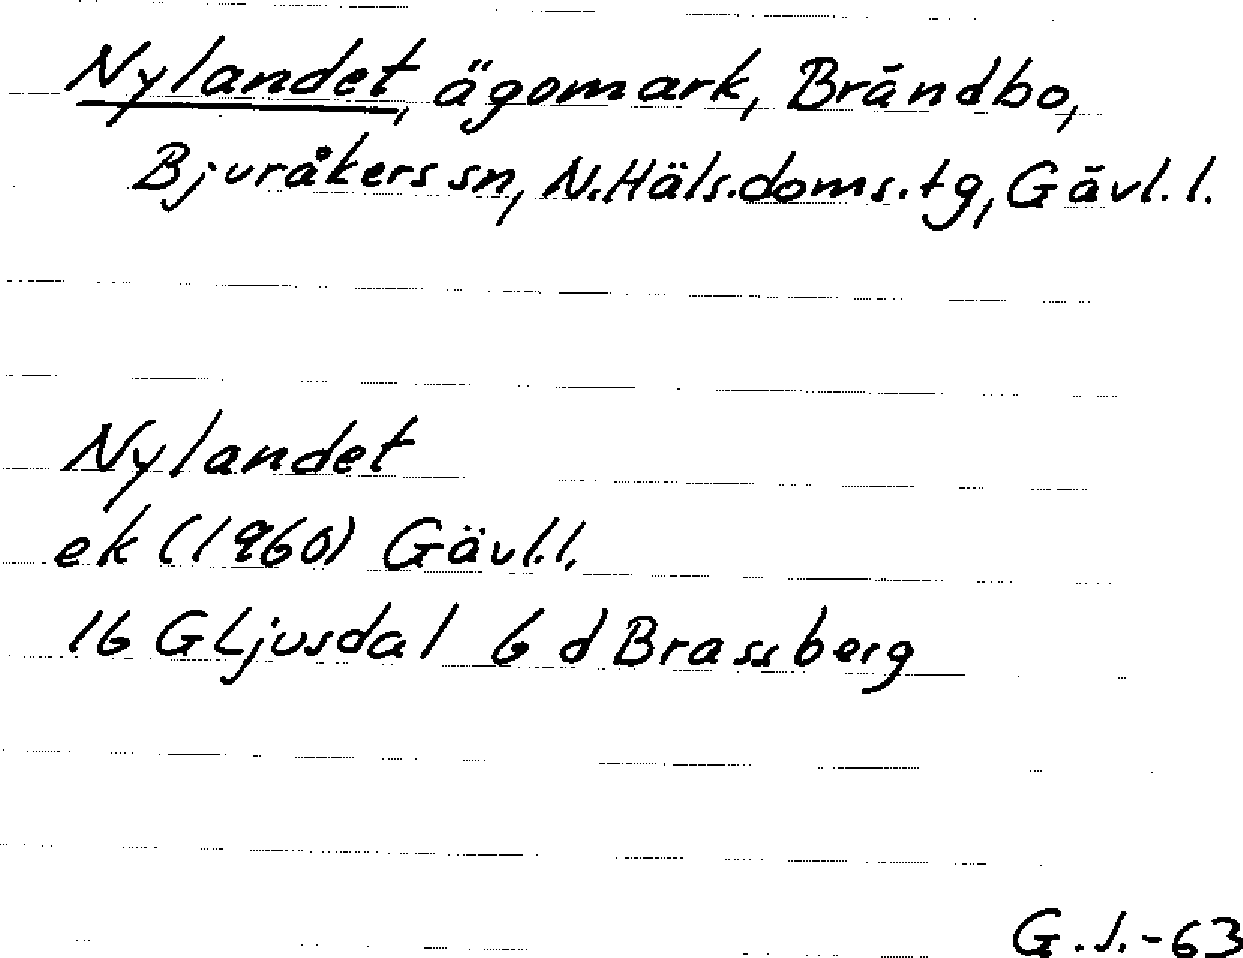 Nylandet, ägomark, Brändbo,
Bjuråkers sn, N.Häls.doms.tg, Gävl.l.
Nylandet
ek (1960) Gävl.l.
16 G Ljusdal 6 d Brassberg
G.J.-63